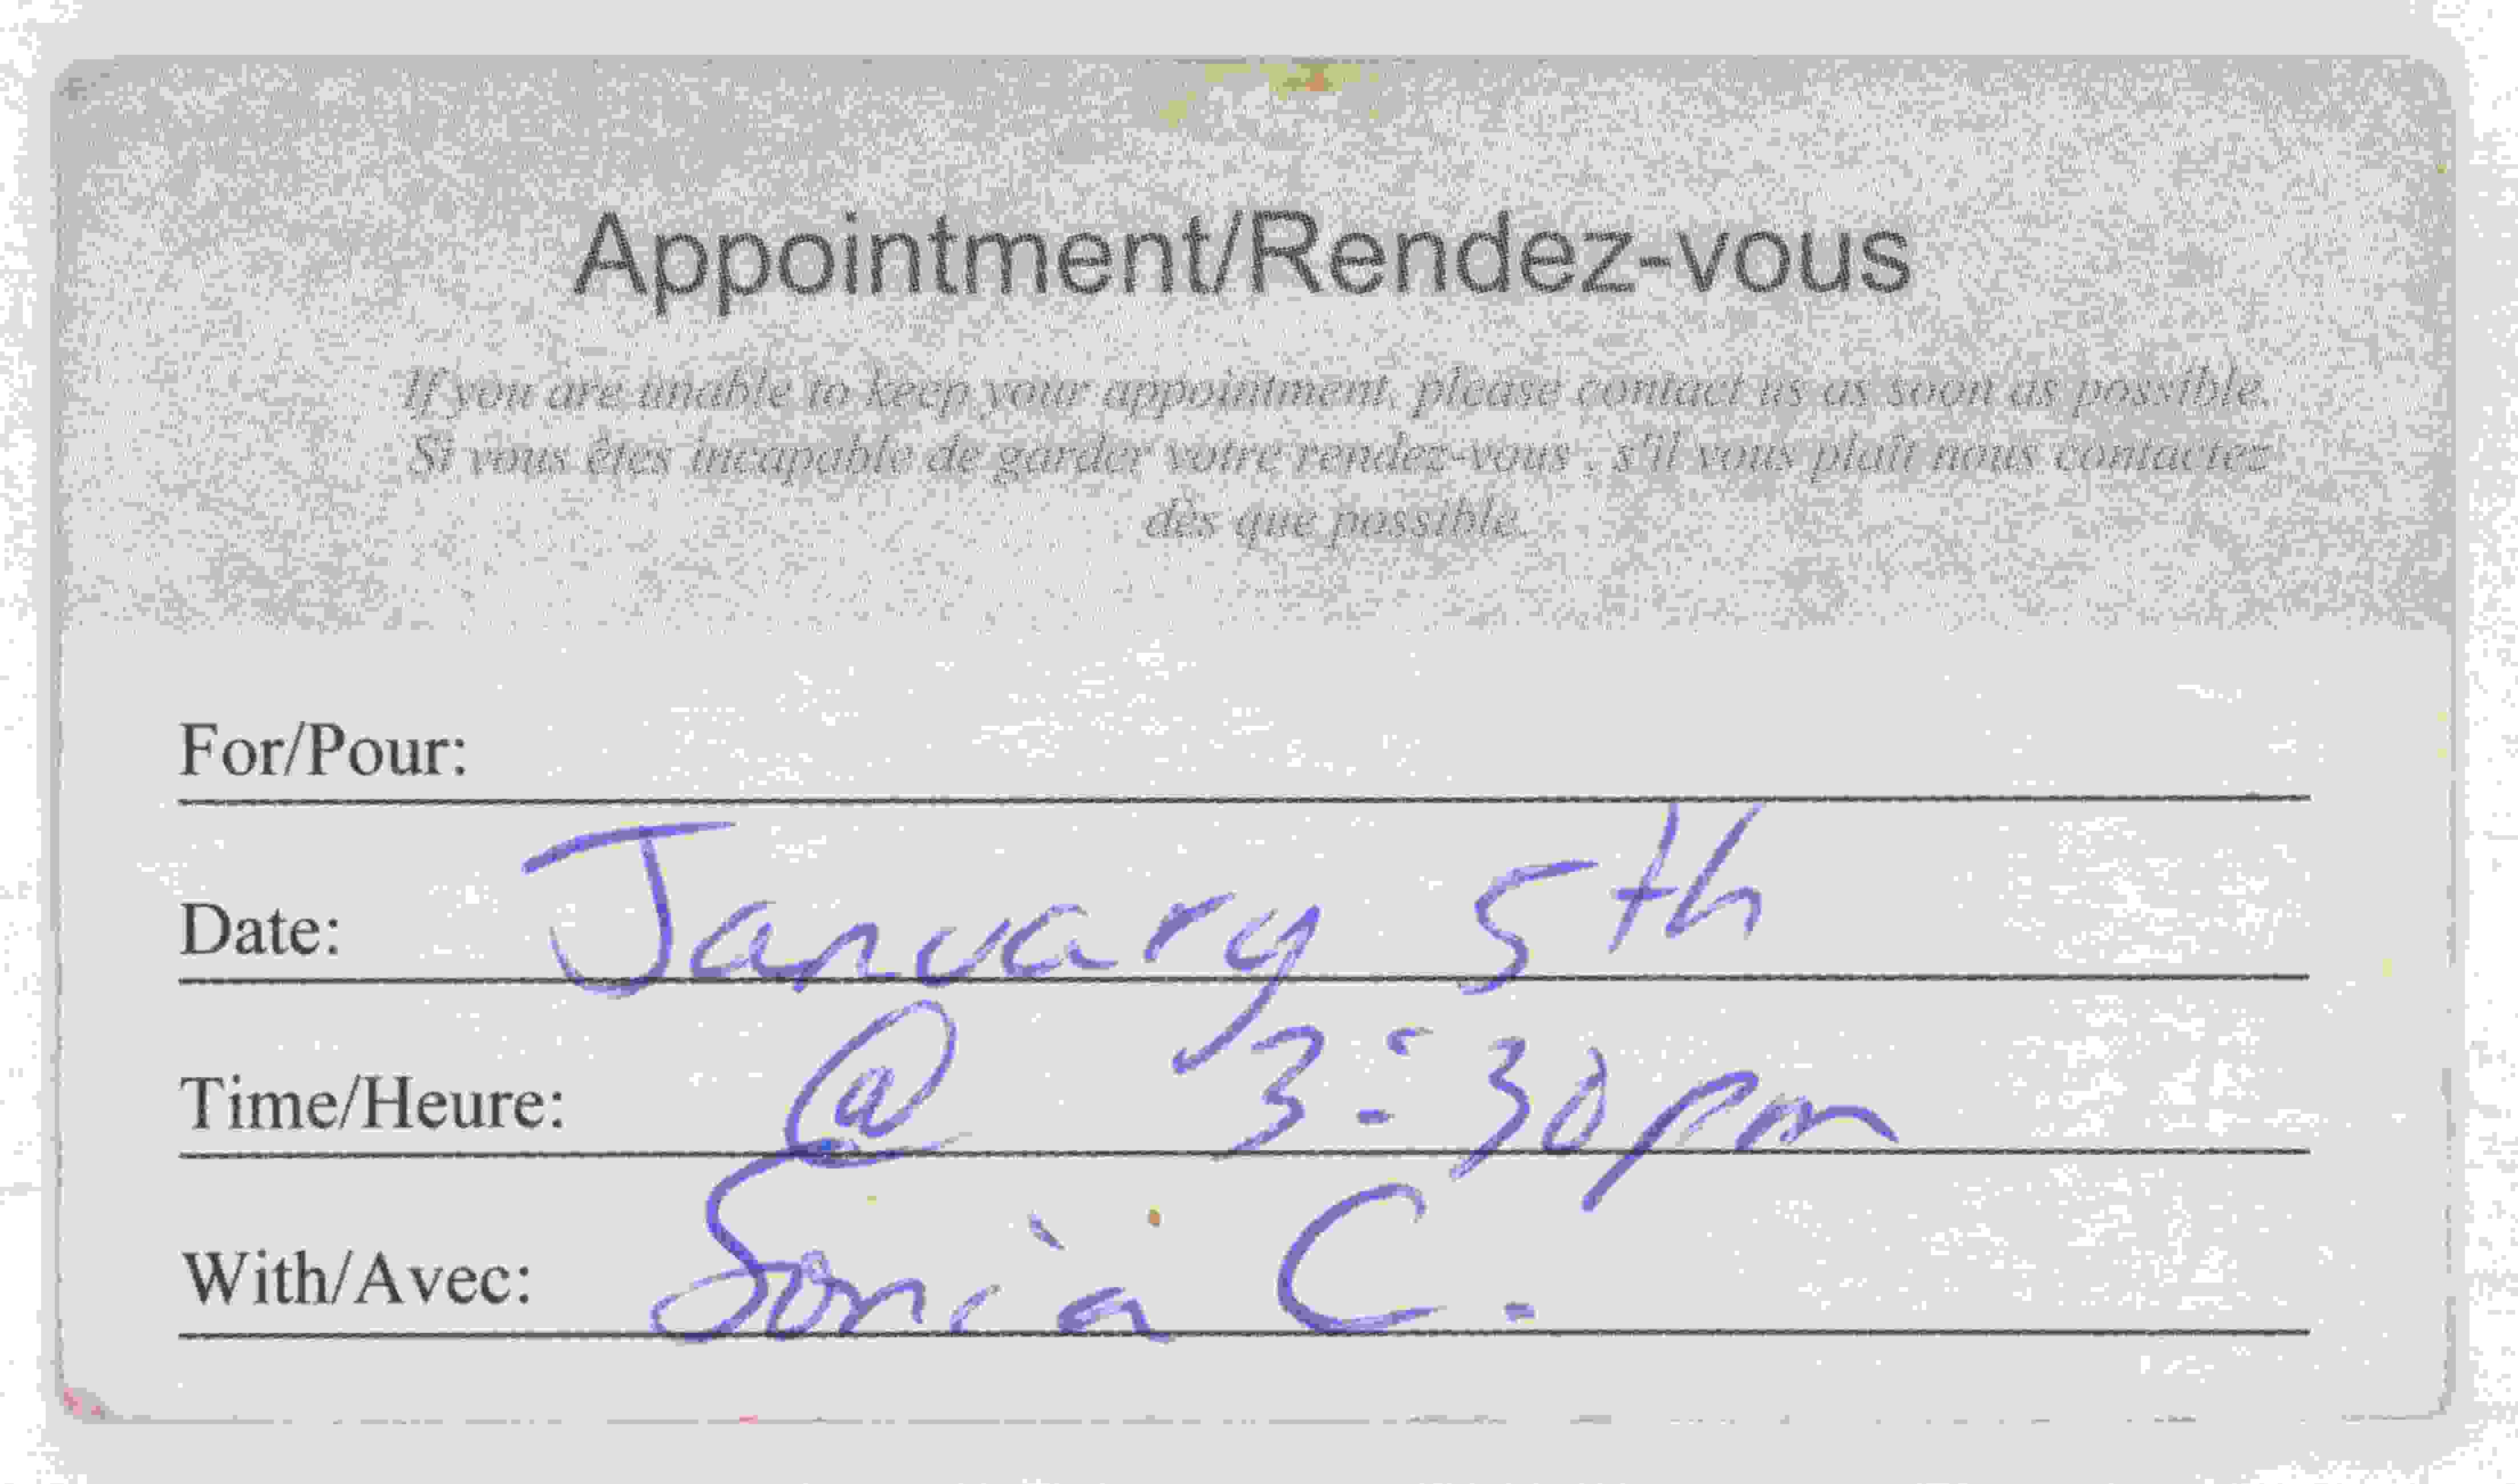 Appointment/Rendez-vous
If you are unable to keep your appointment, please contact us as soon as possible.
Si vous êtes incapable de garder votre rendez-vous , s'il vous plaît nous contactez
dès que possible.
For/Pour:
Date: January 5th
Time/Heure: @ 3:30pm
With/Avec: Sonia C.